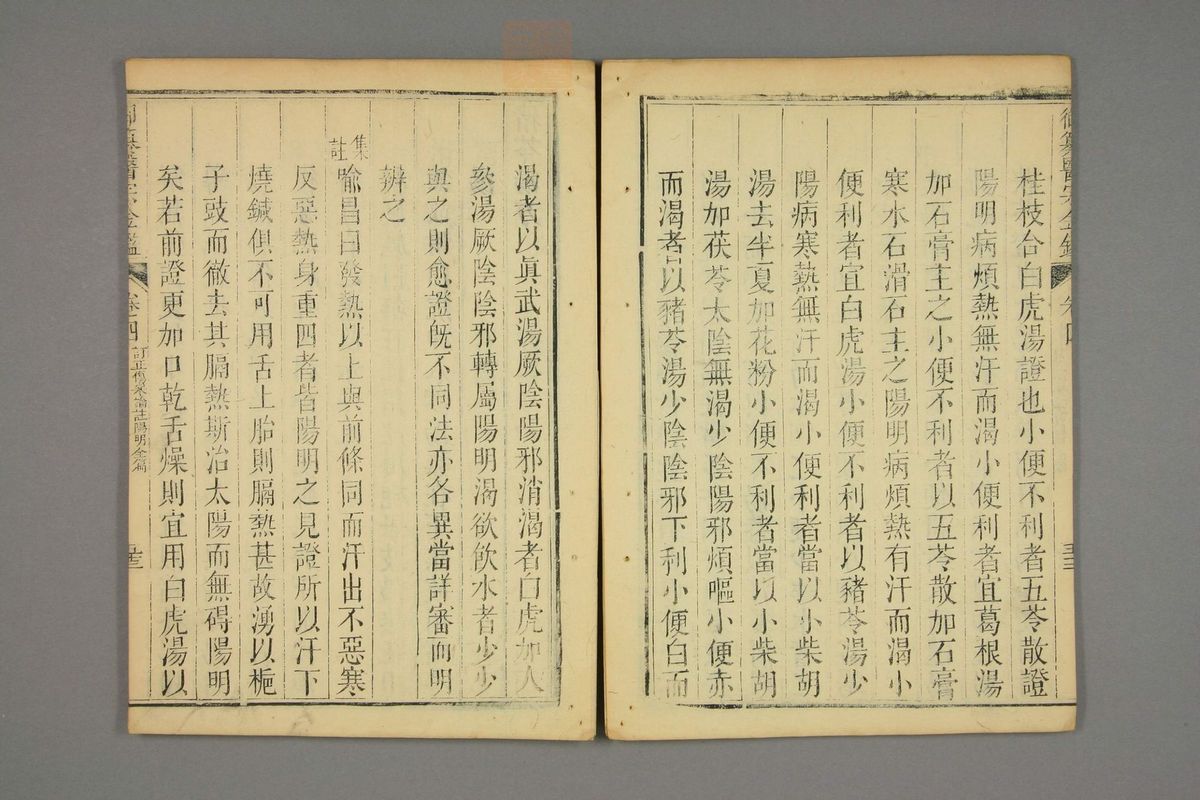 御纂醫宗金鑑 卷四
桂枝合白虎湯證也小便不利者五苓散證
陽明病煩熱無汗而渴小便利者宜葛根湯
加石膏主之小便不利者以五苓散加石膏
寒水石滑石主之陽明病煩熱有汗而渴小
便利者宜白虎湯小便不利者以豬苓湯少
陽病寒熱無汗而渴小便利者當以小柴胡
湯去半夏加花粉小便不利者當以小柴胡
湯加茯苓太陰無渴少陰陽邪煩嘔小便赤
而渴者以豬苓湯少陰陰邪下利小便白而
渴者以眞武湯厥陰陽邪消渴者白虎加人
參湯厥陰陰邪轉屬陽明渴欲飲水者少少
與之則愈證旣不同法亦各異當詳審而明
辨之
集註喻昌曰發熱以上與前條同而汗出不惡寒
反惡熱身重四者皆陽明之見證所以汗下
燒鍼俱不可用舌上胎則膈熱甚故湧以梔
子豉而徹去其膈熱斯治太陽而無碍陽明
矣若前證更加口乾舌燥則宜用白虎湯以
御纂醫宗金鑑 卷四 訂正傷寒論註陽明全篇